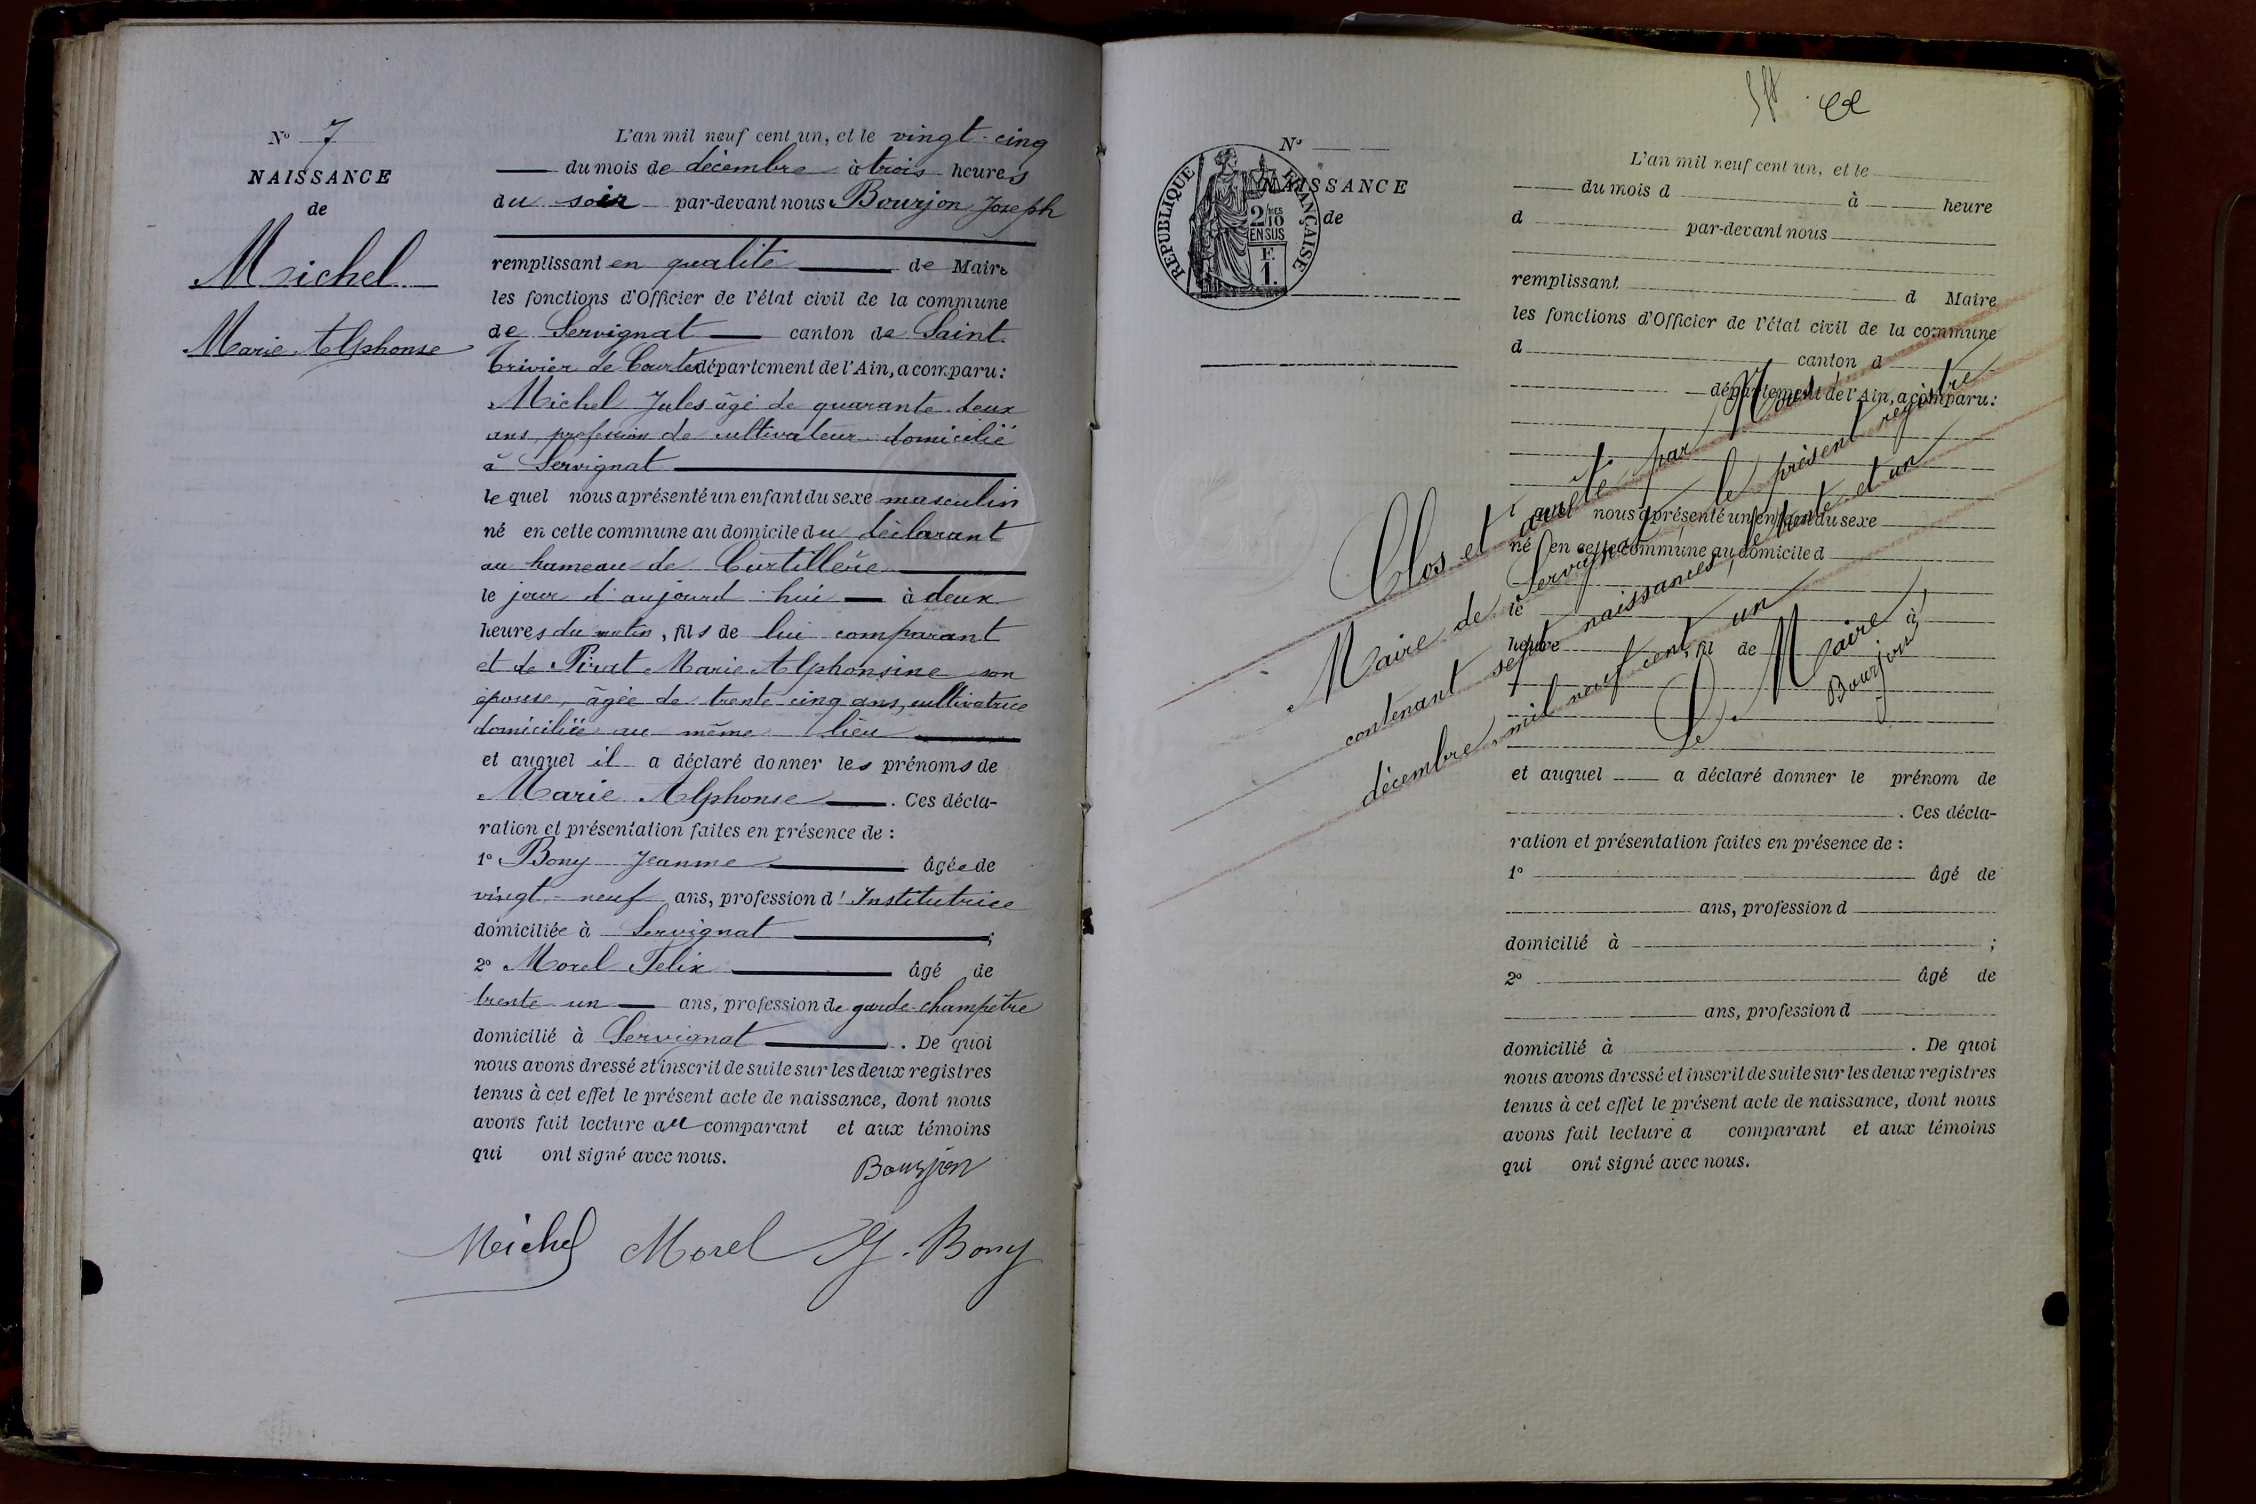 N° 7
NAISSANCE
de
Michel
Marie Alphonse
L'an mil neuf cent un, et le vingt-cinq
du mois de décembre à trois heures
du soir par-devant nous Bourjon Joseph
remplissant en qualité de Maire
les fonctions d'Officier de l'état civil de la commune
de Servignat canton de Saint
Trivier de Courtes département de l'Ain, a comparu :
Michel Jules âgé de quarante deux
ans, profession de cultivateur domicilié
à Servignat
le quel nous a présenté un enfant du sexe masculin
né en cette commune au domicile du déclarant
au hameau de Curtillère
le jour d'aujourd'hui à deux
heures du matin, fils de lui comparant
et de Pirat Marie Alphonsine son
épouse, âgée de trente cinq ans, cultivatrice
domiciliée au même lieu
et auquel il a déclaré donner les prénoms de
Marie Alphonse. Ces décla-
ration et présentation faites en présence de :
1° Bony Jeanne âgée de
vingt-neuf ans, profession d'Institutrice
domiciliée à Servignat ;
2° Morel Felix âgé de
trente un ans, profession de garde-champêtre
domicilié à Servignat. De quoi
nous avons dressé et inscrit de suite sur les deux registres
tenus à cet effet le présent acte de naissance, dont nous
avons fait lecture au comparant et aux témoins
qui ont signé avec nous.
Bourjon
Michel Morel J. Bony
N°
NAISSANCE
de
REPUBLIQUE FRANÇAISE
2/10
EN SUS
F.
1.
L'an mil neuf cent un, et le
du mois d à heure
d par-devant nous
remplissant d Maire
les fonctions d'Officier de l'état civil de la commune
d canton d
département de l'Ain, a comparu :
l quel nous a présenté un enfant du sexe
né en cette commune au domicile d
le à
heure , fil de
et auquel a déclaré donner le prénom de
. Ces décla-
ration et présentation faites en présence de :
1° âgé de
ans, profession d
domicilié à ;
2° âgé de
ans, profession d
domicilié à . De quoi
nous avons dressé et inscrit de suite sur les deux registres
tenus à cet effet le présent acte de naissance, dont nous
avons fait lecture a comparant et aux témoins
qui ont signé avec nous.
Clos et arrêté par Nous
Maire de Servignat, le présent registre
contenant sept naissances, le trente et un
décembre mil neuf cent un
Le Maire
Bourjon